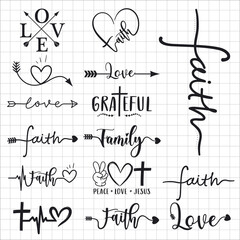 LOVE
faith
faith
Love
love
GRATEFUL
faith
Family
faith
PEACE • LOVE • JESUS
Faith
Love